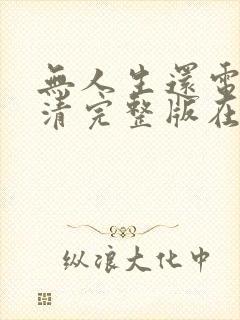 無人生還電
清完整版在
纵浪大化中